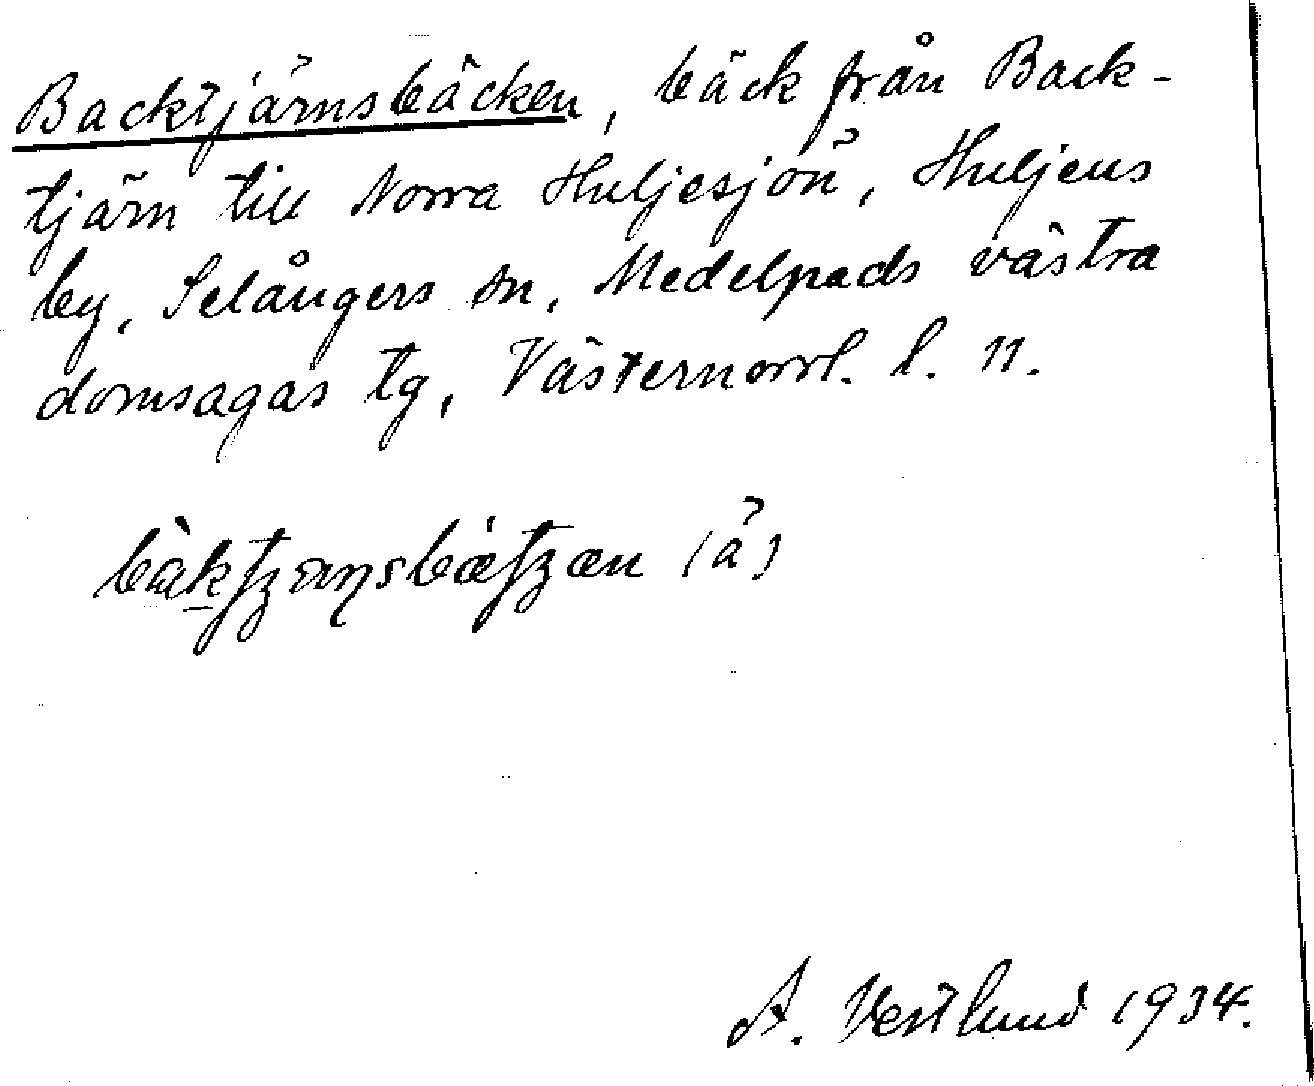 Backtjärnsbäcken, bäck från Back-
tjärn till Norra Huljesjön, Huljens
by, Selångers sn, Medelpads västra
domsagas tg, Västernorrl. l. 11.
(ä)
A. Vestlund 1934.